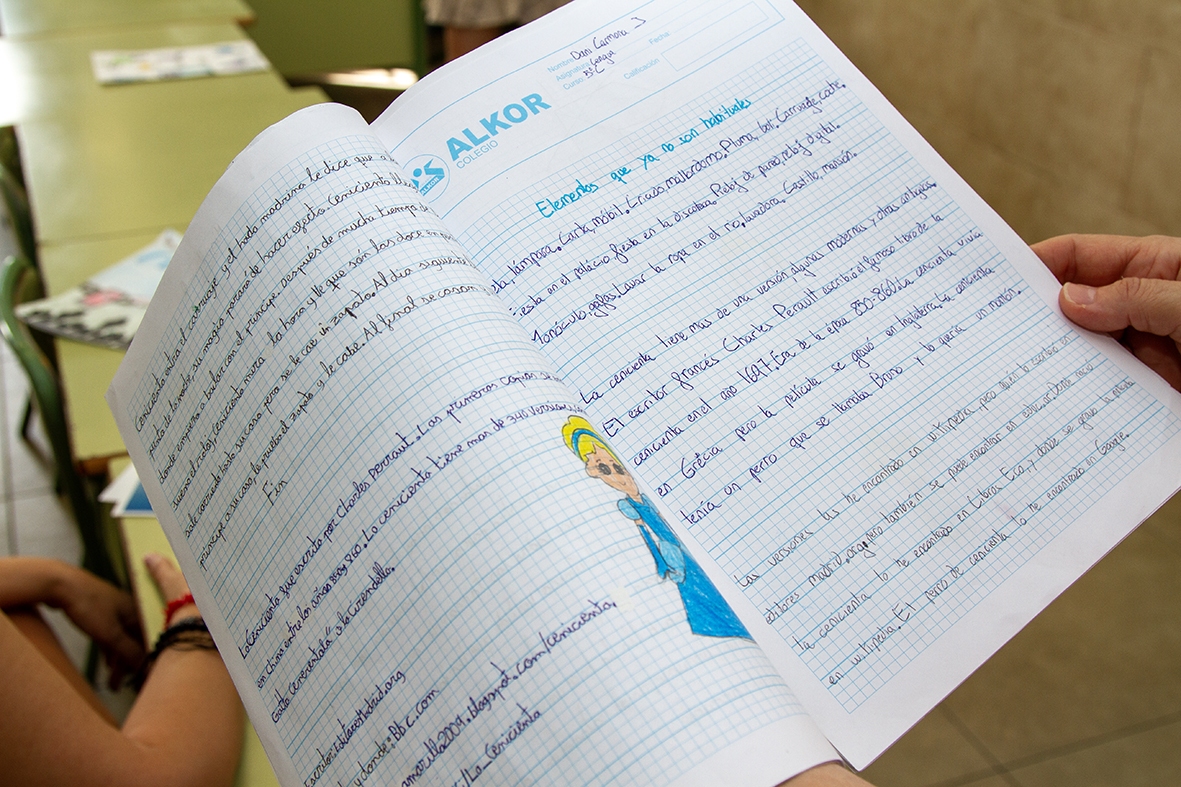 Cenicienta entra el carruaje y el hada madrina le dice que a
punto de la noche, su magia parará de hacer efecto. Cenicienta
donde empieza a bailar con el príncipe. Después de mucho tiempo
suena el reloj, Cenicienta mira la hora y ve que son las doce en
sale corriendo hasta su casa pero se le cae un zapato. Al día siguiente
príncipe a su casa, le prueba el zapato y le cabe. Al final se casan
Fin
La Cenicienta fue escrita por Charles Perraut. Las primeras copias se
en China entre los años 850 y 860. La cenicienta tiene mas de 340 versiones
Gatta cenerentola" o la cirendella.
Escritor: editoresMadrid.org
y donde: Bbc.com
amarilla2009.blogspot.com/cenicienta.
/La_Cenicienta
ALKOR
COLEGIO
ALKOR
Nombre Dani Carmona J
Asignatura Lengua
Curso 5ºC
Fecha
Calificación
Elementos que ya no son habituales
lámpara. Carta, móbil. Criado, mallordomo. Pluma, boli. Carruage, coche.
Fiesta en el palacio, fiesta en la discoteca. Reloj de pared, reloj digital.
Monóculo, gafas. Lavar la ropa en el río, lavadora. Castillo, mansión.
La cenicienta tiene mas de una versión algunas modernas y otras antiguas.
El escritor francés Charles Perault escribió el famoso libro de la
cenicienta en el año 1697. Era de la época 850-860. La cenicienta vivía
en Grécia pero la película se gravó en Inglaterra. La cenicienta
tenía un perro que se llamaba Bruno y lo quería un montón.
Las versiones las he encontrado en wikipedia, pero quién lo escribió en
editores madrid.org, pero también se puede encontrar en este, donde nació
la cenicienta lo he encontrado en Libros Eco, y donde se gravó la película
en wikipedia. El perro de cenicienta lo he encontrado en Google.